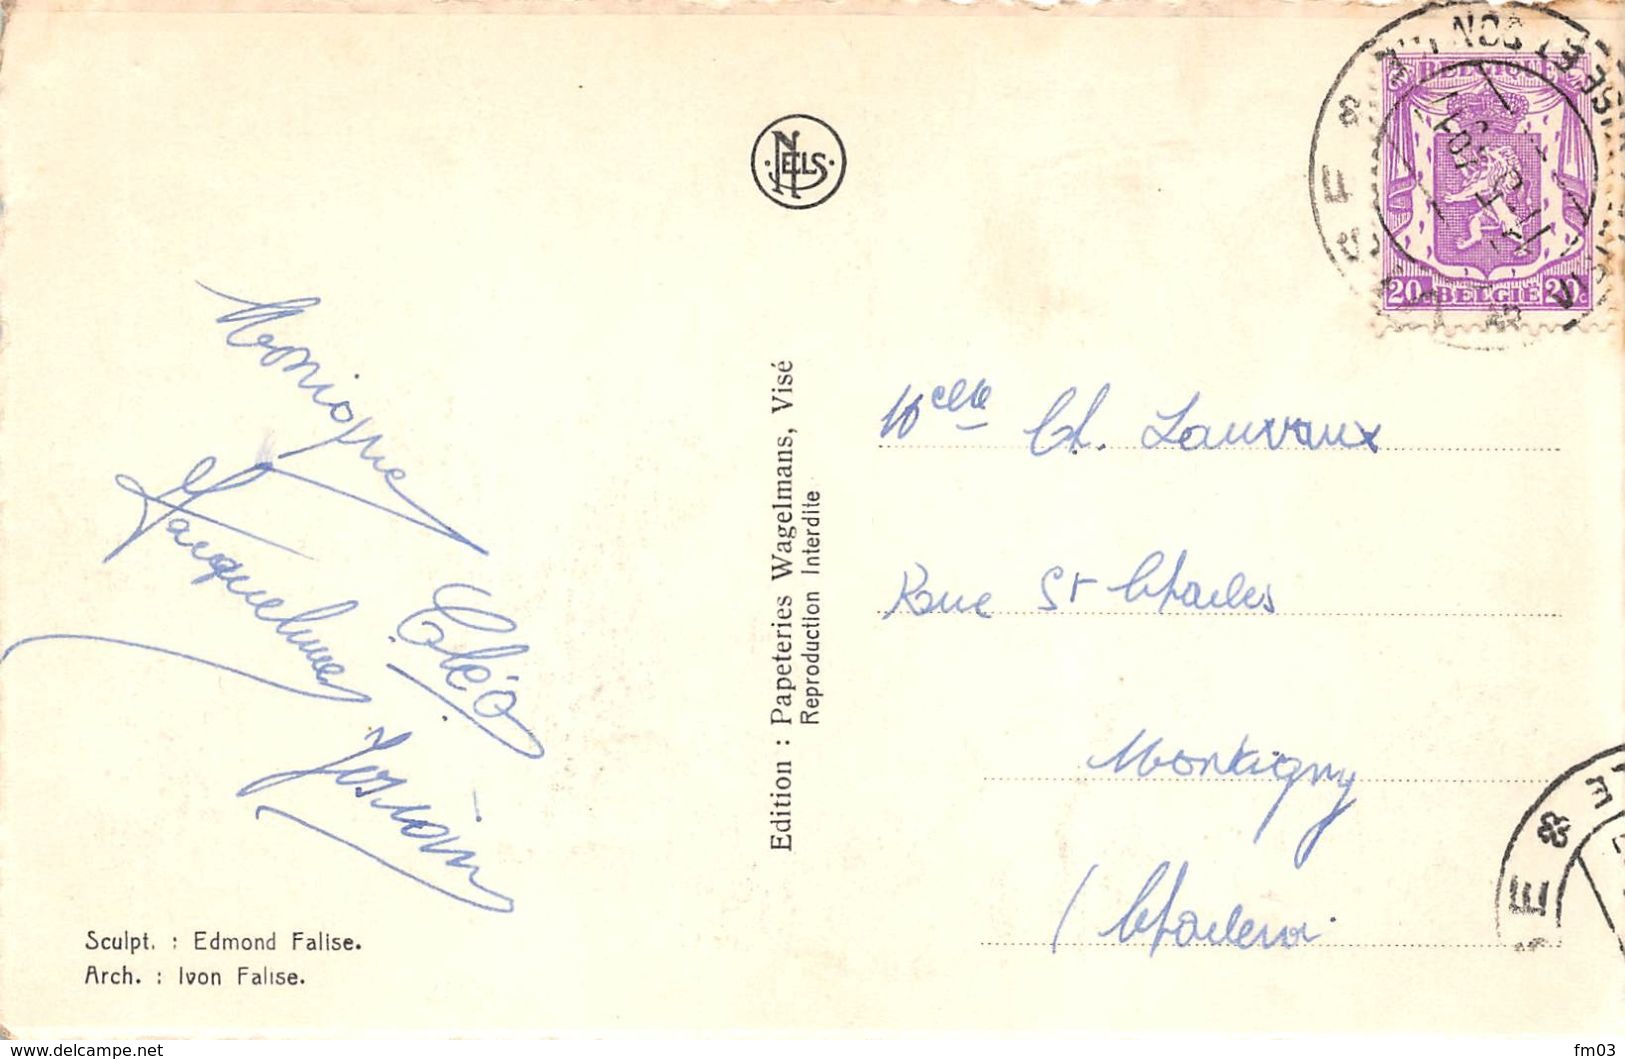 NELS
BELGIQUE
20 BELGIE 20c
Monique
Jacqueline
Cléo
Edition : Papeteries Wagelmans, Visé
Reproduction Interdite
Melle Ch. Lauvaux
Rue St Charles
Montigny
/ Charleroi
Sculpt. : Edmond Falise.
Arch. : Ivon Falise.
www.delcampe.net
fm03